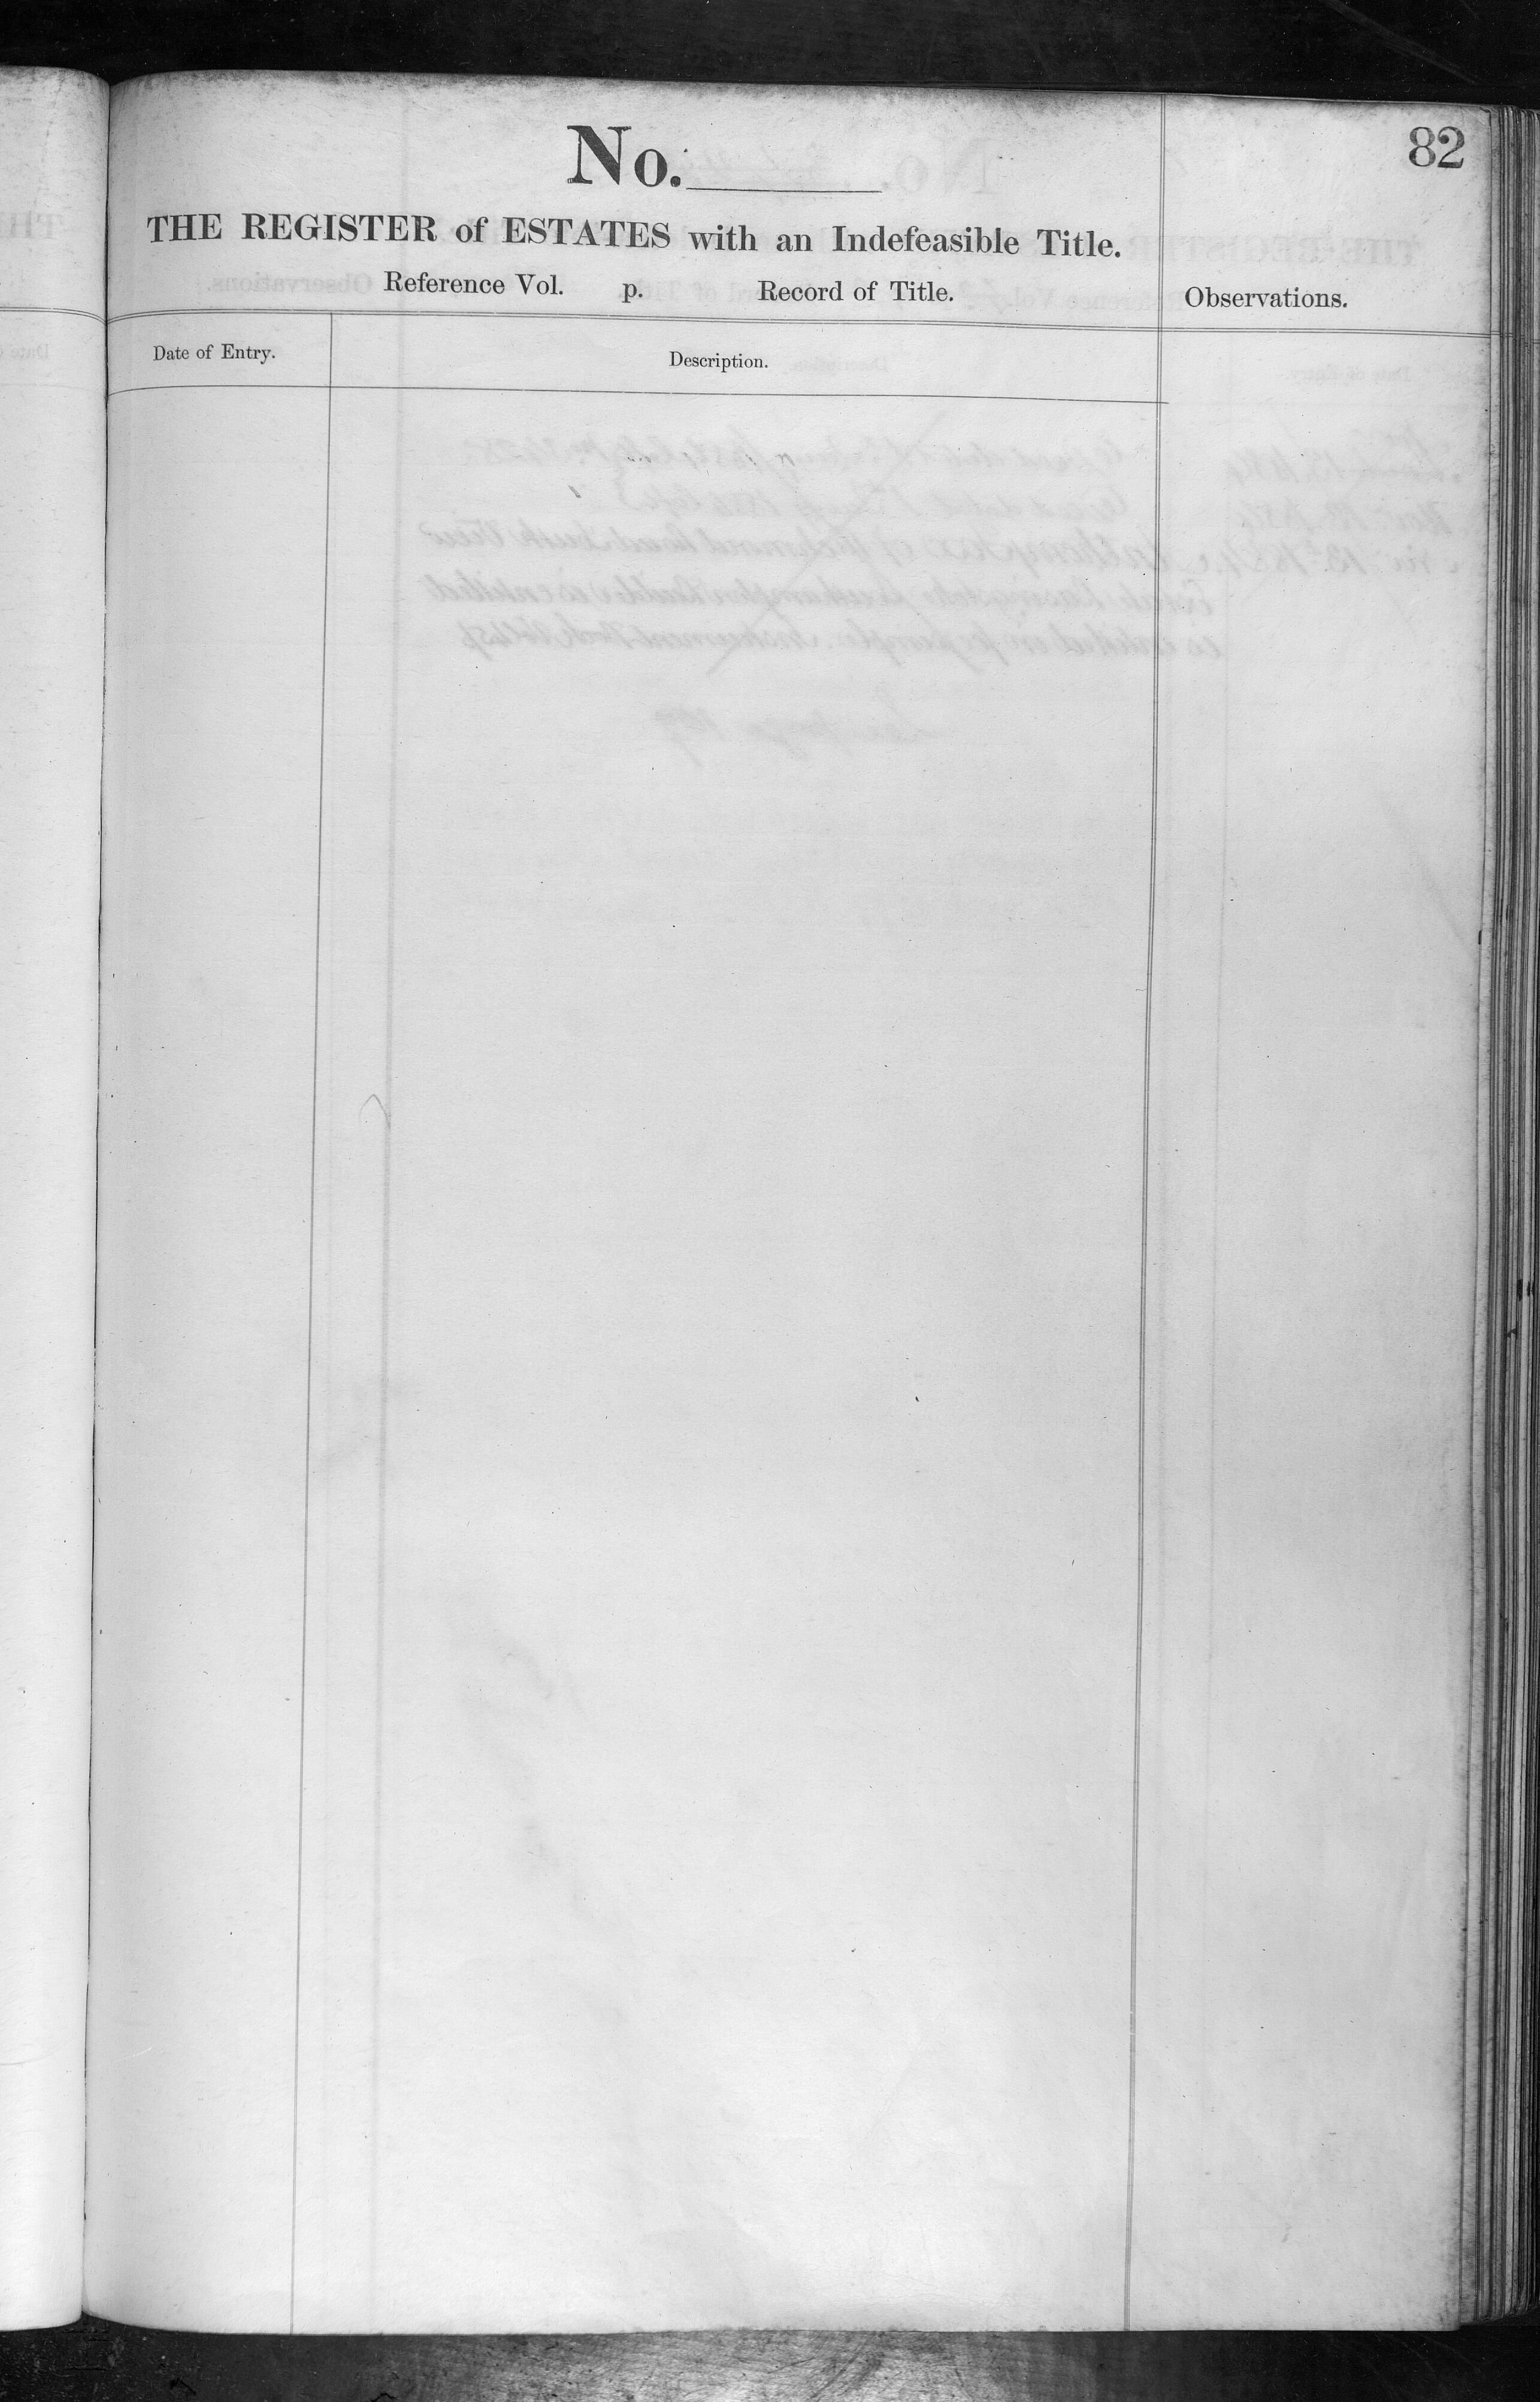 82
No.
THE REGISTER of ESTATES with an Indefeasible Title.
Reference Vol. p. Record of Title.
Observations.
Date of Entry.
Description.